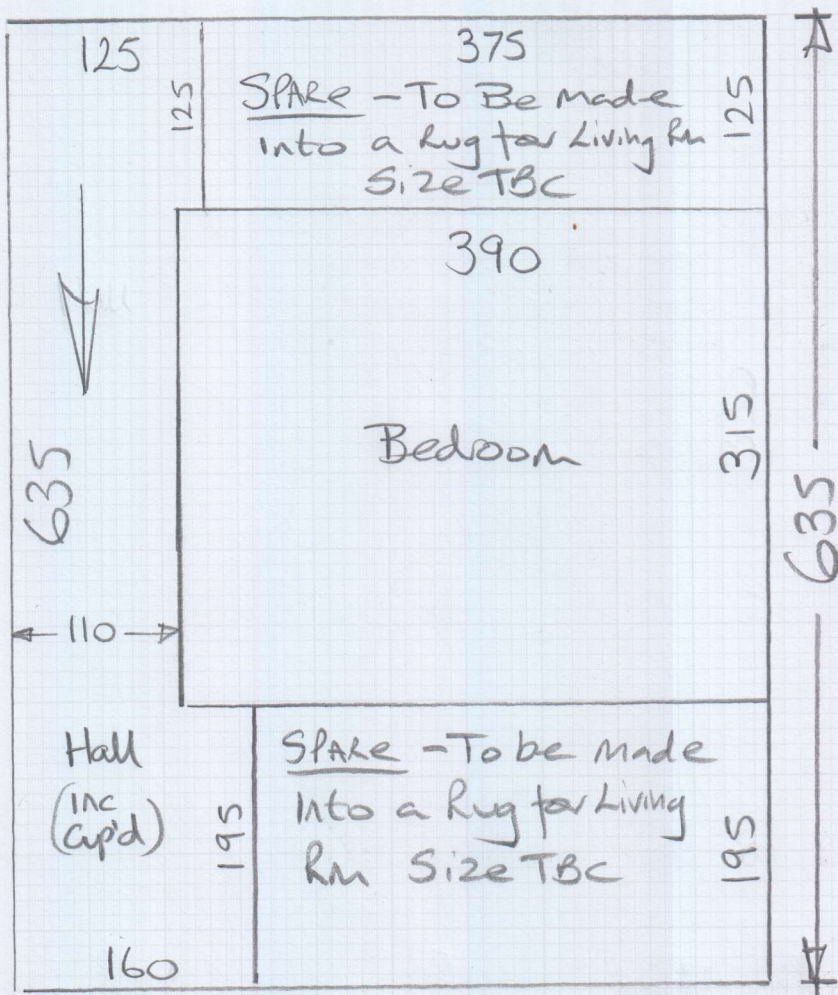 125
125
375
SPARE - To Be made
into a Rug for Living Rm
Size TBC
125
390
Bedroom
315
635
635
110
Hall
(inc
cup'd)
160
195
SPARE - To be made
into a Rug for Living
Rm Size TBC
195